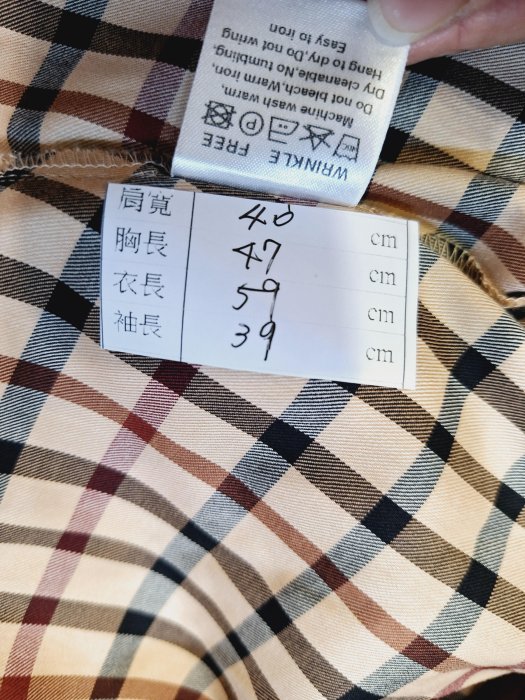 WRINKLE FREE
Machine wash warm,
Do not bleach,Warm iron,
Dry cleanable,No tumbling,
Hang to dry,Do not wring
Easy to iron
肩寬 40 cm
胸長 47 cm
衣長 59 cm
袖長 39 cm